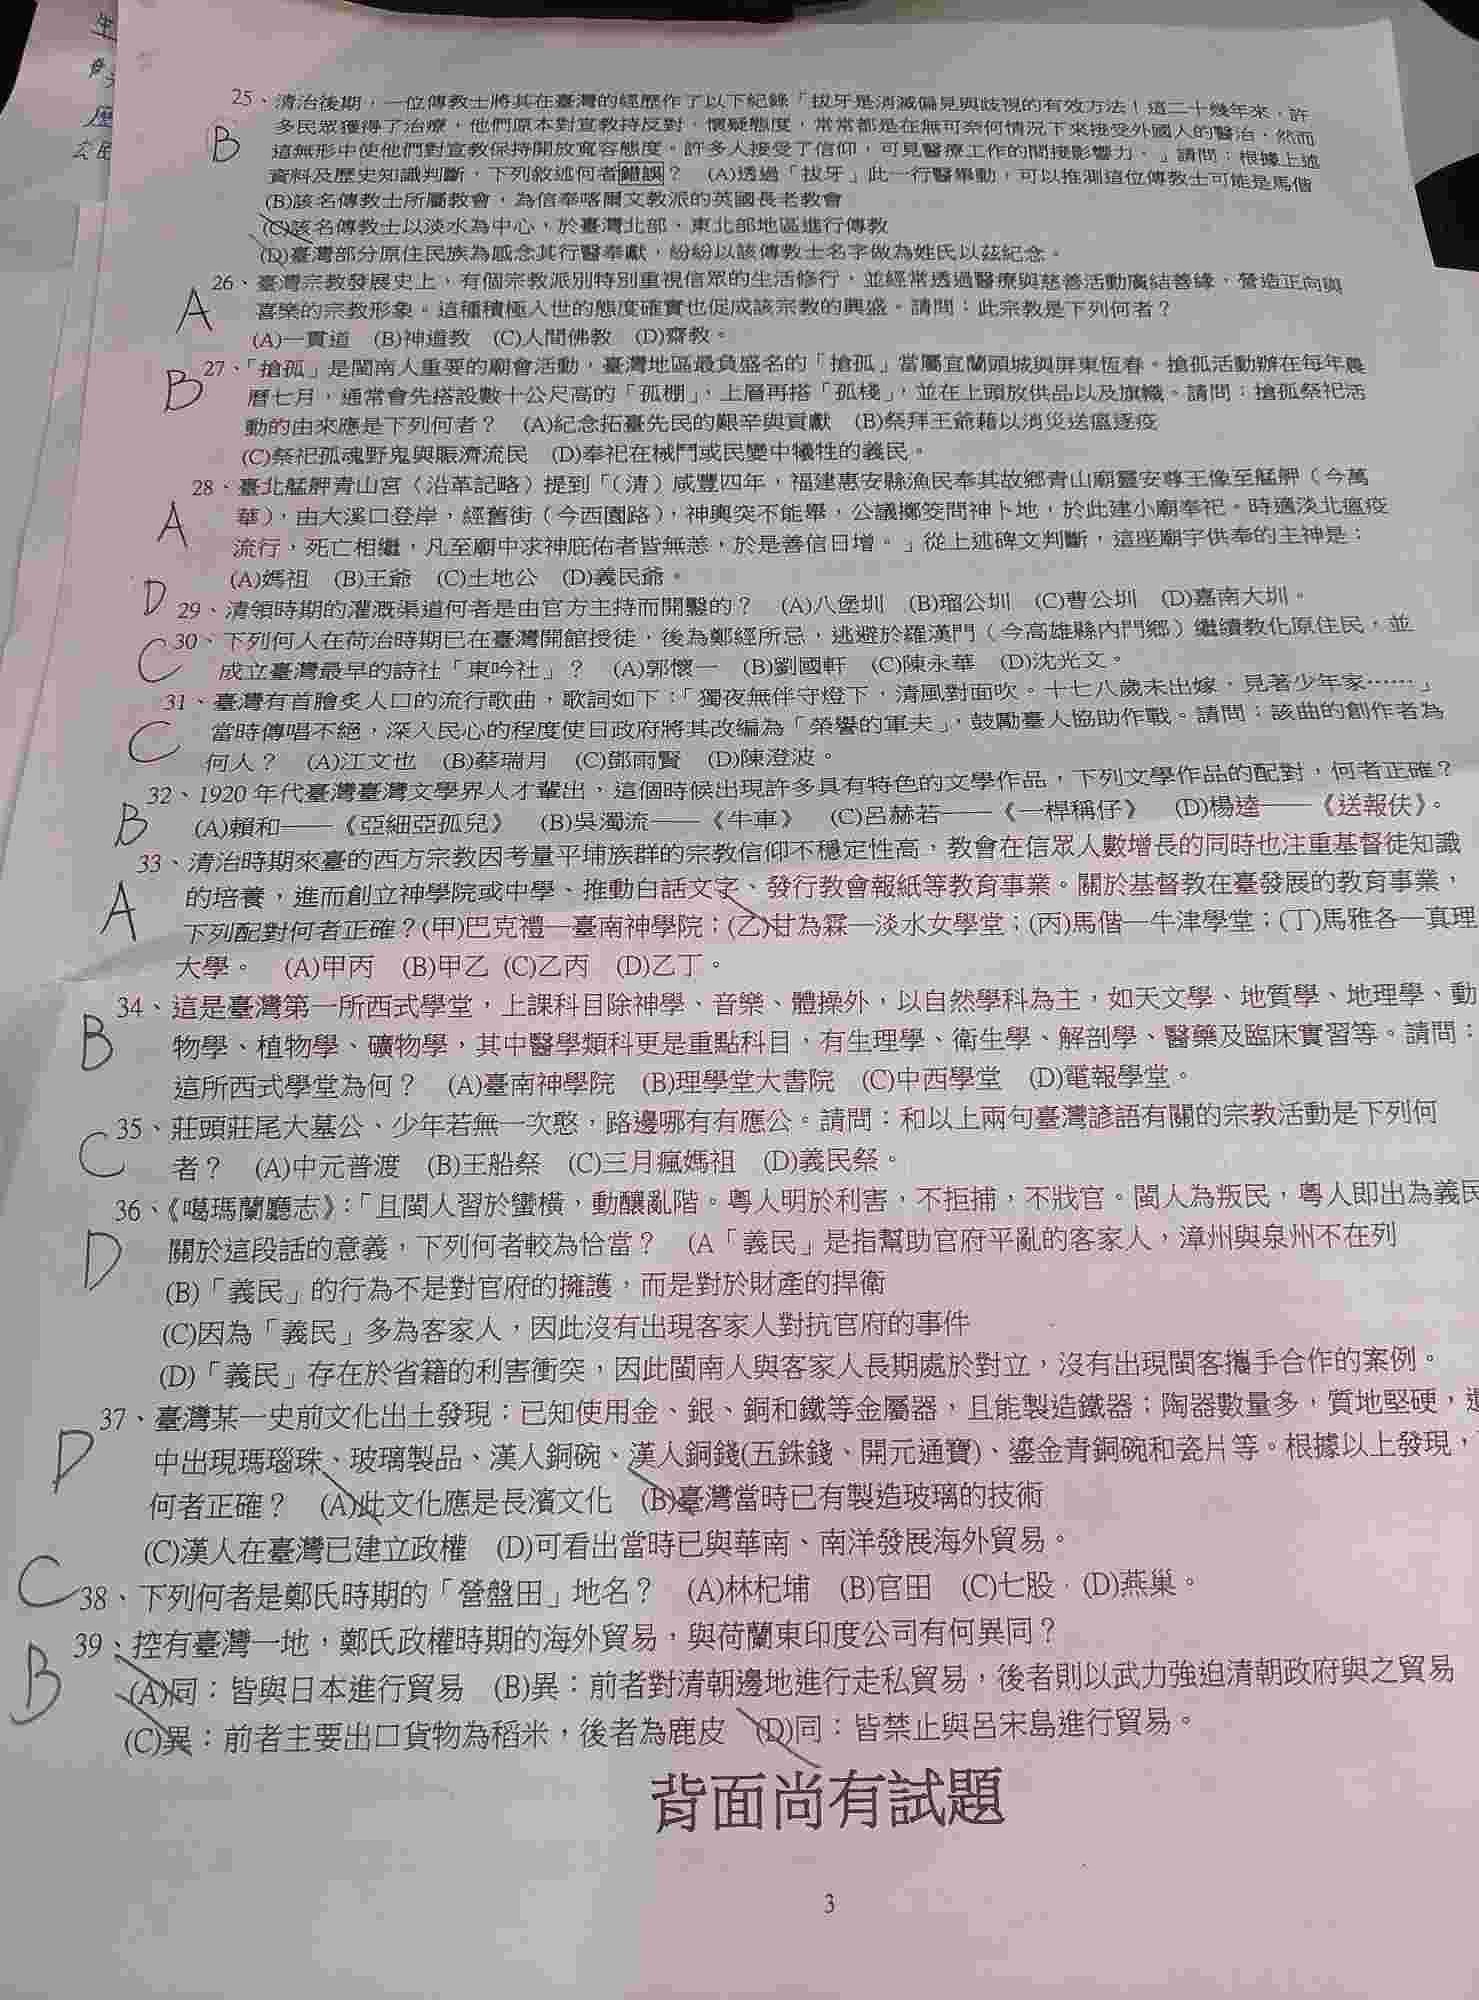 25、清治後期，一位傳教士將其在臺灣的經歷作了以下紀錄「拔牙是消滅偏見與歧視的有效方法！這二十幾年來，許
多民眾獲得了治療，他們原本對宣教持反對、懷疑態度，常常都是在無可奈何情況下來接受外國人的醫治，然而
B
這無形中使他們對宣教保持開放寬容態度。許多人接受了信仰，可見醫療工作的間接影響力。」請問：根據上述
資料及歷史知識判斷，下列敘述何者錯誤？ (A)透過「拔牙」此一行醫舉動，可以推測這位傳教士可能是馬偕
(B)該名傳教士所屬教會，為信奉喀爾文教派的英國長老教會
(C)該名傳教士以淡水為中心，於臺灣北部、東北部地區進行傳教
(D)臺灣部分原住民族為感念其行醫奉獻，紛紛以該傳教士名字做為姓氏以茲紀念。
26、臺灣宗教發展史上，有個宗教派別特別重視信眾的生活修行，並經常透過醫療與慈善活動廣結善緣，營造正向與
A
喜樂的宗教形象。這種積極入世的態度確實也促成該宗教的興盛。請問：此宗教是下列何者？
(A)一貫道 (B)神道教 (C)人間佛教 (D)齋教。
27、「搶孤」是閩南人重要的廟會活動，臺灣地區最負盛名的「搶孤」當屬宜蘭頭城與屏東恆春。搶孤活動辦在每年農
B
曆七月，通常會先搭設數十公尺高的「孤棚」，上層再搭「孤棧」，並在上頭放供品以及旗幟。請問：搶孤祭祀活
動的由來應是下列何者？ (A)紀念拓臺先民的艱辛與貢獻 (B)祭拜王爺藉以消災送瘟逐疫
(C)祭祀孤魂野鬼與賑濟流民 (D)奉祀在械鬥或民變中犧牲的義民。
28、臺北艋舺青山宮〈沿革記略〉提到「（清）咸豐四年，福建惠安縣漁民奉其故鄉青山廟靈安尊王像至艋舺（今萬
A
華），由大溪口登岸，經舊街（今西園路），神輿突不能舉，公議擲筊問神卜地，於此建小廟奉祀。時適淡北瘟疫
流行，死亡相繼，凡至廟中求神庇佑者皆無恙，於是善信日增。」從上述碑文判斷，這座廟宇供奉的主神是：
(A)媽祖 (B)王爺 (C)土地公 (D)義民爺。
D
29、清領時期的灌溉渠道何者是由官方主持而開鑿的？ (A)八堡圳 (B)瑠公圳 (C)曹公圳 (D)嘉南大圳。
C
30、下列何人在荷治時期已在臺灣開館授徒，後為鄭經所忌，逃避於羅漢門（今高雄縣內門鄉）繼續教化原住民，並
成立臺灣最早的詩社「東吟社」？ (A)郭懷一 (B)劉國軒 (C)陳永華 (D)沈光文。
31、臺灣有首膾炙人口的流行歌曲，歌詞如下：「獨夜無伴守燈下，清風對面吹。十七八歲未出嫁，見著少年家……」
C
當時傳唱不絕，深入民心的程度使日政府將其改編為「榮譽的軍夫」，鼓勵臺人協助作戰。請問：該曲的創作者為
何人？ (A)江文也 (B)蔡瑞月 (C)鄧雨賢 (D)陳澄波。
32、1920 年代臺灣臺灣文學界人才輩出，這個時候出現許多具有特色的文學作品，下列文學作品的配對，何者正確？
B
(A)賴和——《亞細亞孤兒》 (B)吳濁流——《牛車》 (C)呂赫若——《一桿稱仔》 (D)楊逵——《送報伕》。
33、清治時期來臺的西方宗教因考量平埔族群的宗教信仰不穩定性高，教會在信眾人數增長的同時也注重基督徒知識
A
的培養，進而創立神學院或中學、推動白話文字、發行教會報紙等教育事業。關於基督教在臺發展的教育事業，
下列配對何者正確？(甲)巴克禮—臺南神學院；(乙)甘為霖—淡水女學堂；(丙)馬偕—牛津學堂；(丁)馬雅各—真理
大學。 (A)甲丙 (B)甲乙 (C)乙丙 (D)乙丁。
34、這是臺灣第一所西式學堂，上課科目除神學、音樂、體操外，以自然學科為主，如天文學、地質學、地理學、動
B
物學、植物學、礦物學，其中醫學類科更是重點科目，有生理學、衛生學、解剖學、醫藥及臨床實習等。請問：
這所西式學堂為何？ (A)臺南神學院 (B)理學堂大書院 (C)中西學堂 (D)電報學堂。
35、莊頭莊尾大墓公、少年若無一次憨，路邊哪有有應公。請問：和以上兩句臺灣諺語有關的宗教活動是下列何
C
者？ (A)中元普渡 (B)王船祭 (C)三月瘋媽祖 (D)義民祭。
36、《噶瑪蘭廳志》：「且閩人習於蠻橫，動釀亂階。粵人明於利害，不拒捕，不戕官。閩人為叛民，粵人即出為義民
D
關於這段話的意義，下列何者較為恰當？ (A「義民」是指幫助官府平亂的客家人，漳州與泉州不在列
(B)「義民」的行為不是對官府的擁護，而是對於財產的捍衛
(C)因為「義民」多為客家人，因此沒有出現客家人對抗官府的事件
(D)「義民」存在於省籍的利害衝突，因此閩南人與客家人長期處於對立，沒有出現閩客攜手合作的案例。
37、臺灣某一史前文化出土發現：已知使用金、銀、銅和鐵等金屬器，且能製造鐵器；陶器數量多，質地堅硬，
D
中出現瑪瑙珠、玻璃製品、漢人銅碗、漢人銅錢(五銖錢、開元通寶)、鎏金青銅碗和瓷片等。根據以上發現，
何者正確？ (A)此文化應是長濱文化 (B)臺灣當時已有製造玻璃的技術
(C)漢人在臺灣已建立政權 (D)可看出當時已與華南、南洋發展海外貿易。
C
38、下列何者是鄭氏時期的「營盤田」地名？ (A)林杞埔 (B)官田 (C)七股 (D)燕巢。
39、控有臺灣一地，鄭氏政權時期的海外貿易，與荷蘭東印度公司有何異同？
B
(A)同：皆與日本進行貿易 (B)異：前者對清朝邊地進行走私貿易，後者則以武力強迫清朝政府與之貿易
(C)異：前者主要出口貨物為稻米，後者為鹿皮 (D)同：皆禁止與呂宋島進行貿易。
背面尚有試題
3